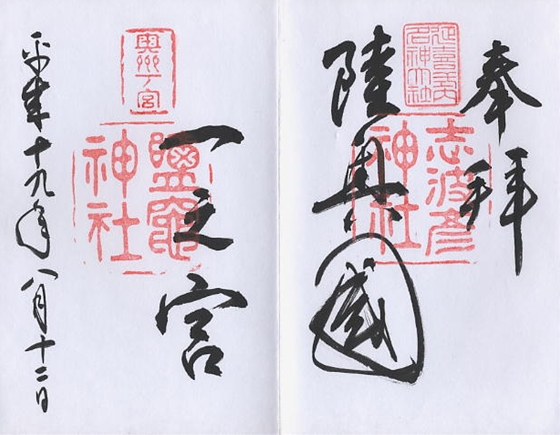 奉拝
延喜式内
名神大社
志波彦
神社
陸奥國
奥州一宮
鹽竈
神社
一之宮
平成十九年八月十二日